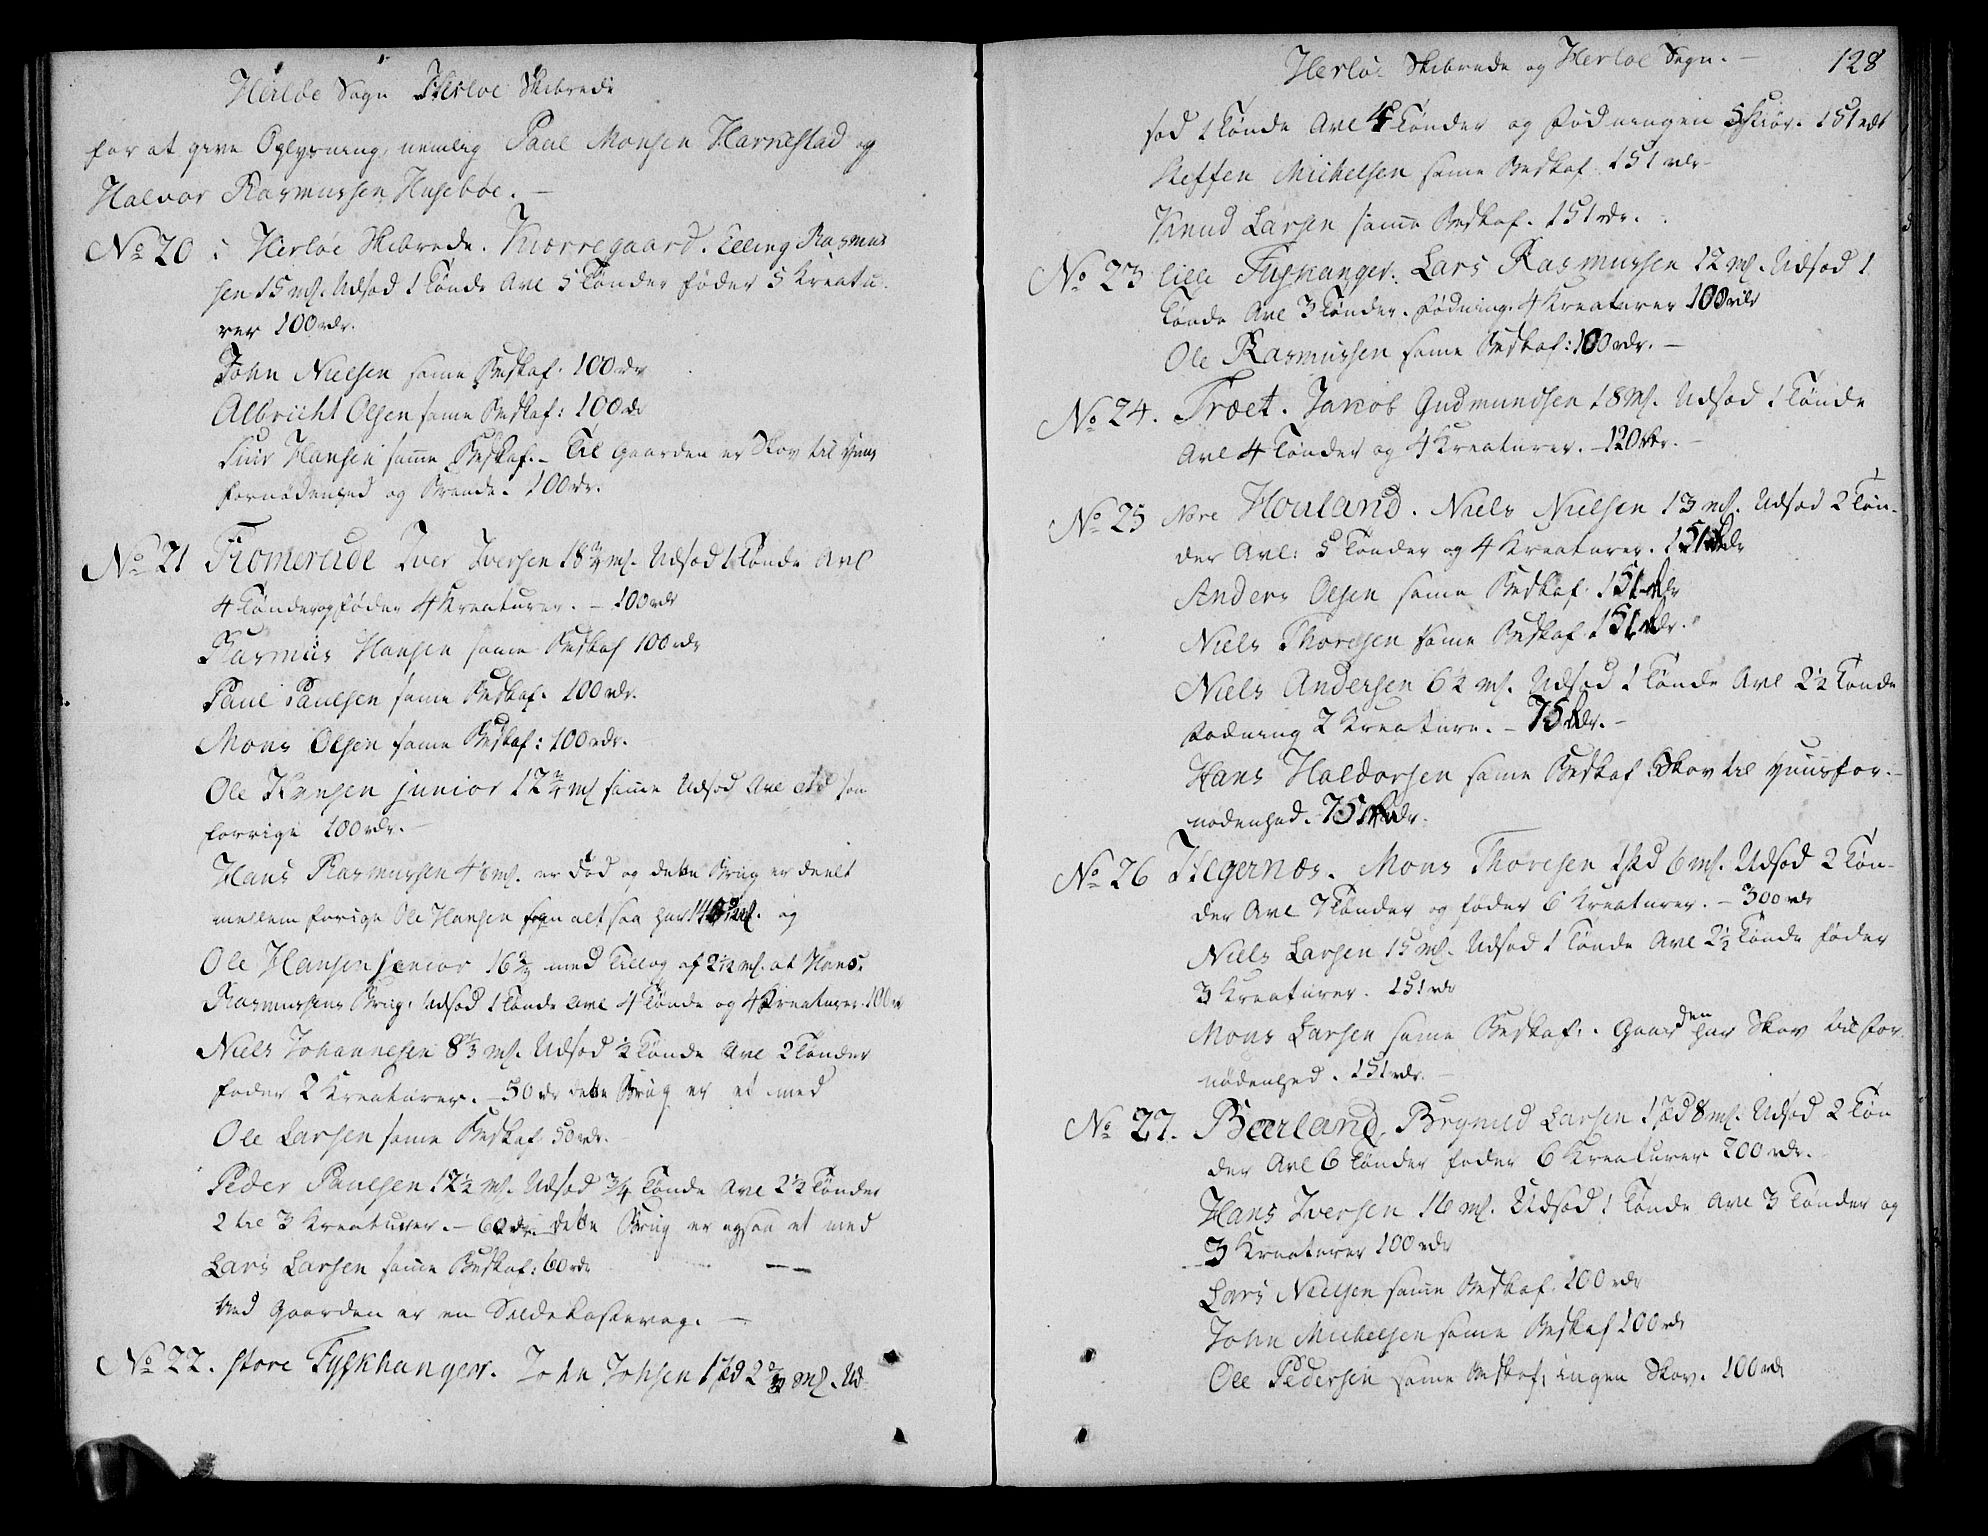 Herløe Sogn Herløe Skibrede
for at give Oplysning, nemlig Paul Monsen Harkestad og
Halvor Rasmussen Husebøe. —
No 20 i Herløe Skibrede. Kværregaard. Elling Rasmus
sen 15 mk. Udsæd 1 Tønde Avl 5 Tønder føder 5 Kreatu-
rer 100 rdr.
John Nielsen samme Beskaf. 100 rdr
Albricht Olsen samme Beskaf: 100 rdr
Siur Hansen samme Beskaf. – Til Gaarden er Skov til Huus
fornødenhed og Brænde. 100 rdr.
No 21 Fromereide Iver Iversen 18 ¾ mk. Udsæd 1 Tønde Avl
4 Tønder og føder 4 Kreaturer. – 100 rdr
Rasmus Hansen samme Beskaf 100 rdr
Paul Paulsen samme Beskaf. 100 rdr.
Mons Olsen samme Beskaf: 100 rdr.
Ole Hansen junior 12 ¾ mk samme Udsæd Avl som
forrige 100 rdr. —
Hans Rasmussen mk. er død og dette Brug er deelt
mellem forrige Ole Hansen som altsaa har mk. og
Ole Hansen senior 16 ¾ med Tillæg af 2 ½ mk. af Hans
Rasmussens Brug. Udsæd 1 Tønde Avl 4 Tønde og 4 Kreaturer. 100 r
Niels Johannesen 8 ⅓ mk. Udsæd ½ Tønde Avl 2 Tønder
føder 2 Kreaturer. – 50 rdr dette Brug er et med
Ole Larsen samme Beskaf. 50 rdr. –
Peder Paulsen 12 ½ mk. Udsæd ¾ Tønde Avl 2 ½ Tønder
2 til 3 Kreaturer. – 60 rdr. – dette Brug er ogsaa et med
Lars Larsen samme Beskaf: 60 rdr
Ved Gaarden er en Sildekastevaag. —
No 22. store Fyskhanger. John Johsen 1 pd 2 mk. Ud-
Herløe Skibrede og Herløe Sogn. — 128
sæd 1 Tønde Avl 4 Tønder og Fødningen 5 Kiør. 151 rdr
Steffen Michelsen samme Beskaf. 151 rdr –
Knud Larsen samme Beskaf. 151 rdr.
No 23 lille Fyskanger. Lars Rasmussen 12 mk. Udsæd 1
Tønde Avl 3 Tønder. Fødning. 4 Kreaturer 100 rdr
Ole Rasmussen samme Beskaf: 100 rdr. —
No 24. Træet. Jacob Gudmundsen 18 mk. Udsæd 1 Tønde
Avl 4 Tønder og 4 Kreaturer. – 120 rdr. –
No 25 Nore Houland. Niels Nielsen 13 mk. Udsæd 2 Tøn-
der Avl: 5 Tønder og 4 Kreaturer. 151 rdr
Anders Olsen samme Beskaf. 151 rdr
Niels Thoresen samme Beskaf 151 rdr.
Niels Andersen 6 ½ mk. Udsæd 1 Tønde Avl 2 ½ Tønde
Fødning 2 Kreature. – 75 rdr. –
Hans Haldorsen samme Beskaf. Skov til Huusfor-
nødenhed. 75 rdr.
No 26 Hegernæs. Mons Thoresen 1 pd 6 mk. Udsæd 2 Tøn-
der Avl 7 Tønder og føder 6 Kreaturer. – 300 rdr
Niels Larsen 15 mk. Udsæd 1 Tønde Avl 2 ½ Tønde føder
3 Kreaturer. 151 rdr
Mons Larsen samme Beskaf. Gaarden har Skov til for-
nødenhed. 151 rdr. –
No 27. Bærland. Brynild Larsen 1 pd 8 mk. Udsæd 2 Tøn
der Avl 6 Tønder føder 6 Kreaturer 200 rdr.
Hans Iversen 16 mk. Udsæd 1 Tønde Avl 3 Tønder og
3 Kreaturer 100 rdr
Lars Nielsen samme Beskaf. 100 rdr
John Michelsen samme Beskaf 100 rdr
Ole Pedersen samme Beskaf, ingen Skov. 100 rdr